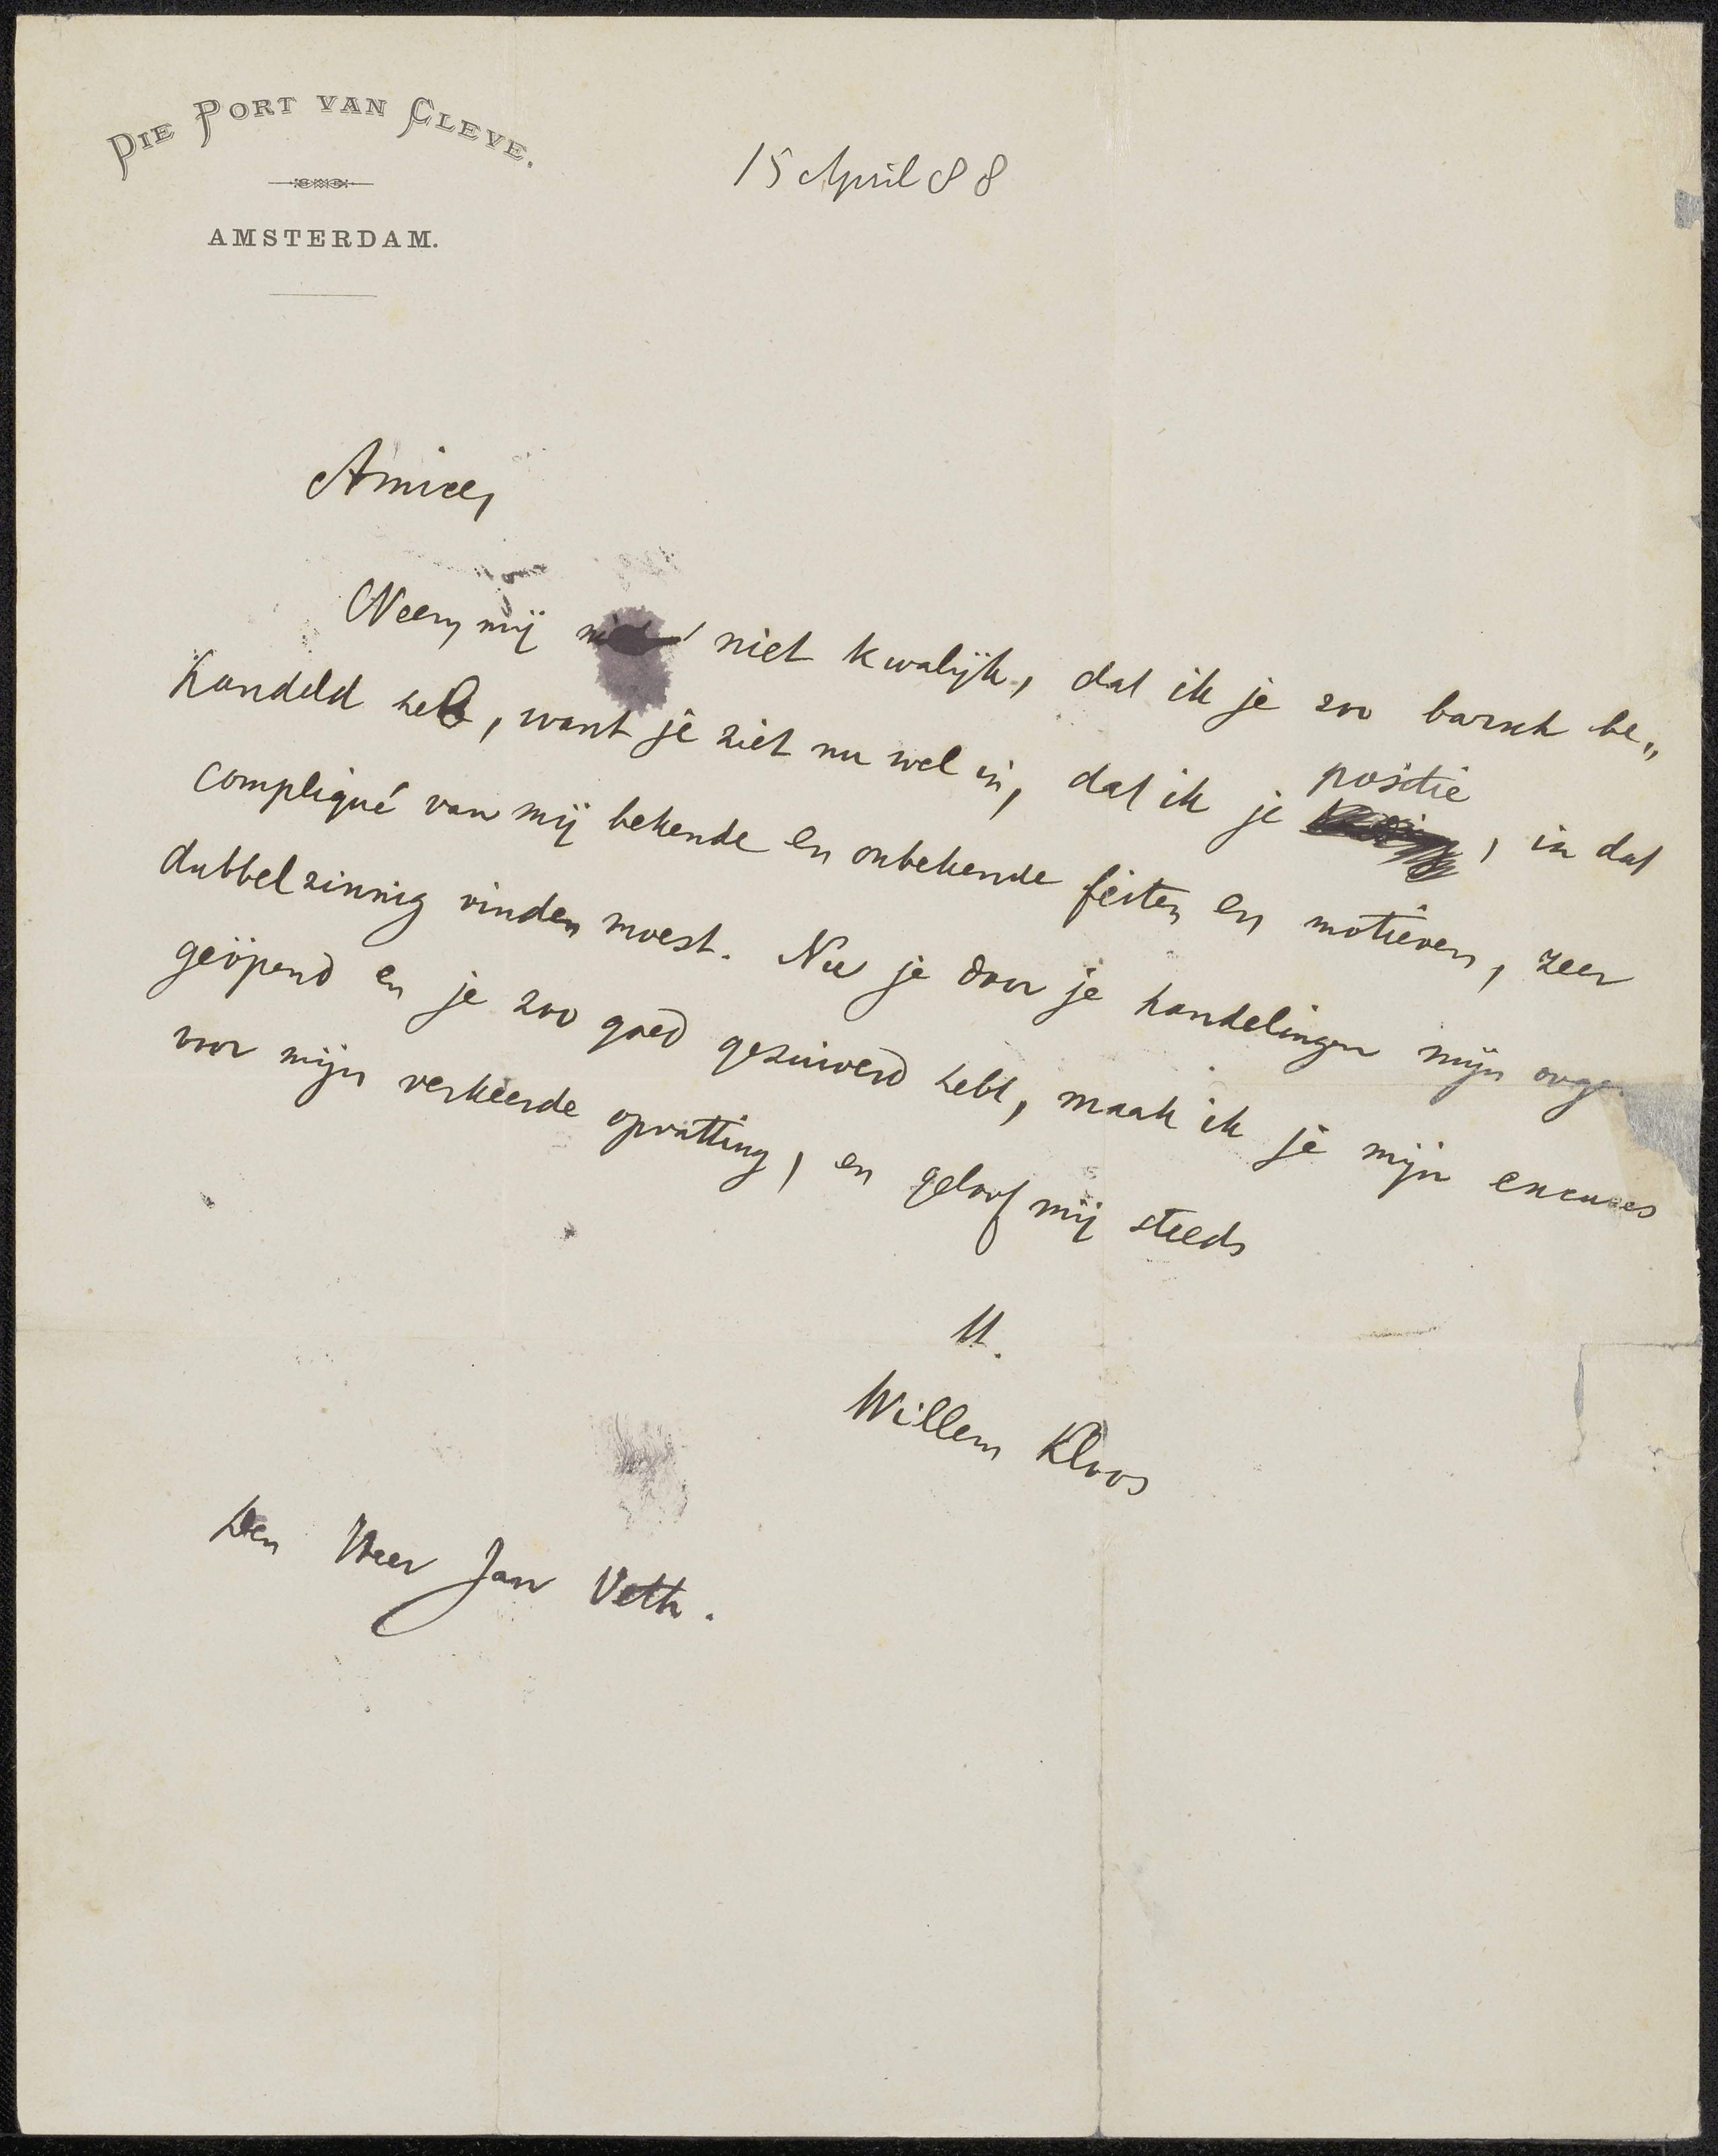 DIE PORT VAN CLEVE.
AMSTERDAM.
15 April 88
Amice,
Neem mij niet kwalijk, dat ik je zoo barsch be„
handeld heb, want je ziet nu wel in, dat ik je positie, in dat
compliqué van mij bekende en onbekende feiten en motieven, zeer
dubbelzinnig vinden moest. Nu je door je handelingen mijn ooge
geöpend en je zoo goed gezuiverd hebt, maak ik je mijn excuses
voor mijn verkeerde opvatting, en geloof mij steeds
tt.
Willem Kloos
Den Heer Jan Veth.